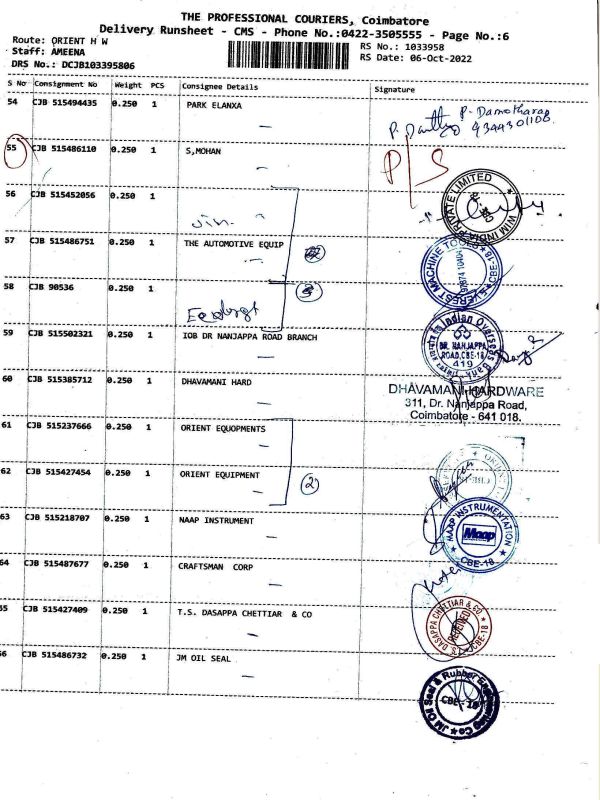 THE PROFESSIONAL COURIERS, Coimbatore
Delivery Runsheet - CMS - Phone No.:0422-3505555 - Page No.:6
Route: ORIENT H W
RS No.: 1033958
Staff: AMEENA
RS Date: 06-Oct-2022
DRS No.: DCJB103395806
S No Consignment No Weight PCS Consignee Details Signature
54 CJB 515494435 0.250 1 PARK ELANXA
P. Damotharan
9344301108
55 CJB 515486110 0.250 1 S,MOHAN
P/S
56 CJB 515452056 0.250 1
WIM INDIA PRIVATE LIMITED
57 CJB 515486751 0.250 1 THE AUTOMOTIVE EQUIP
EVEREST MACHINE TOOLS CBE-18
58 CJB 90536 0.250 1
3
59 CJB 515502321 0.250 1 IOB DR NANJAPPA ROAD BRANCH
Indian Overseas Bank
DR. NANJAPPA
ROAD, CBE-18
419
60 CJB 515385712 0.250 1 DHAVAMANI HARD
DHAVAMANI HARDWARE
311, Dr. Nanjappa Road,
Coimbatore - 641 018.
61 CJB 515237666 0.250 1 ORIENT EQUOPMENTS
62 CJB 515427454 0.250 1 ORIENT EQUIPMENT
2
63 CJB 515218707 0.250 1 NAAP INSTRUMENT
MAAP INSTRUMENTATION
Maap
CBE-18
64 CJB 515487677 0.250 1 CRAFTSMAN CORP
65 CJB 515427409 0.250 1 T.S. DASAPPA CHETTIAR & CO
T.S. DASAPPA CHETTIAR & CO.
CBE-18
66 CJB 515486732 0.250 1 JM OIL SEAL
JM Oil Seal & Rubber Engineering Co
CBE - 18